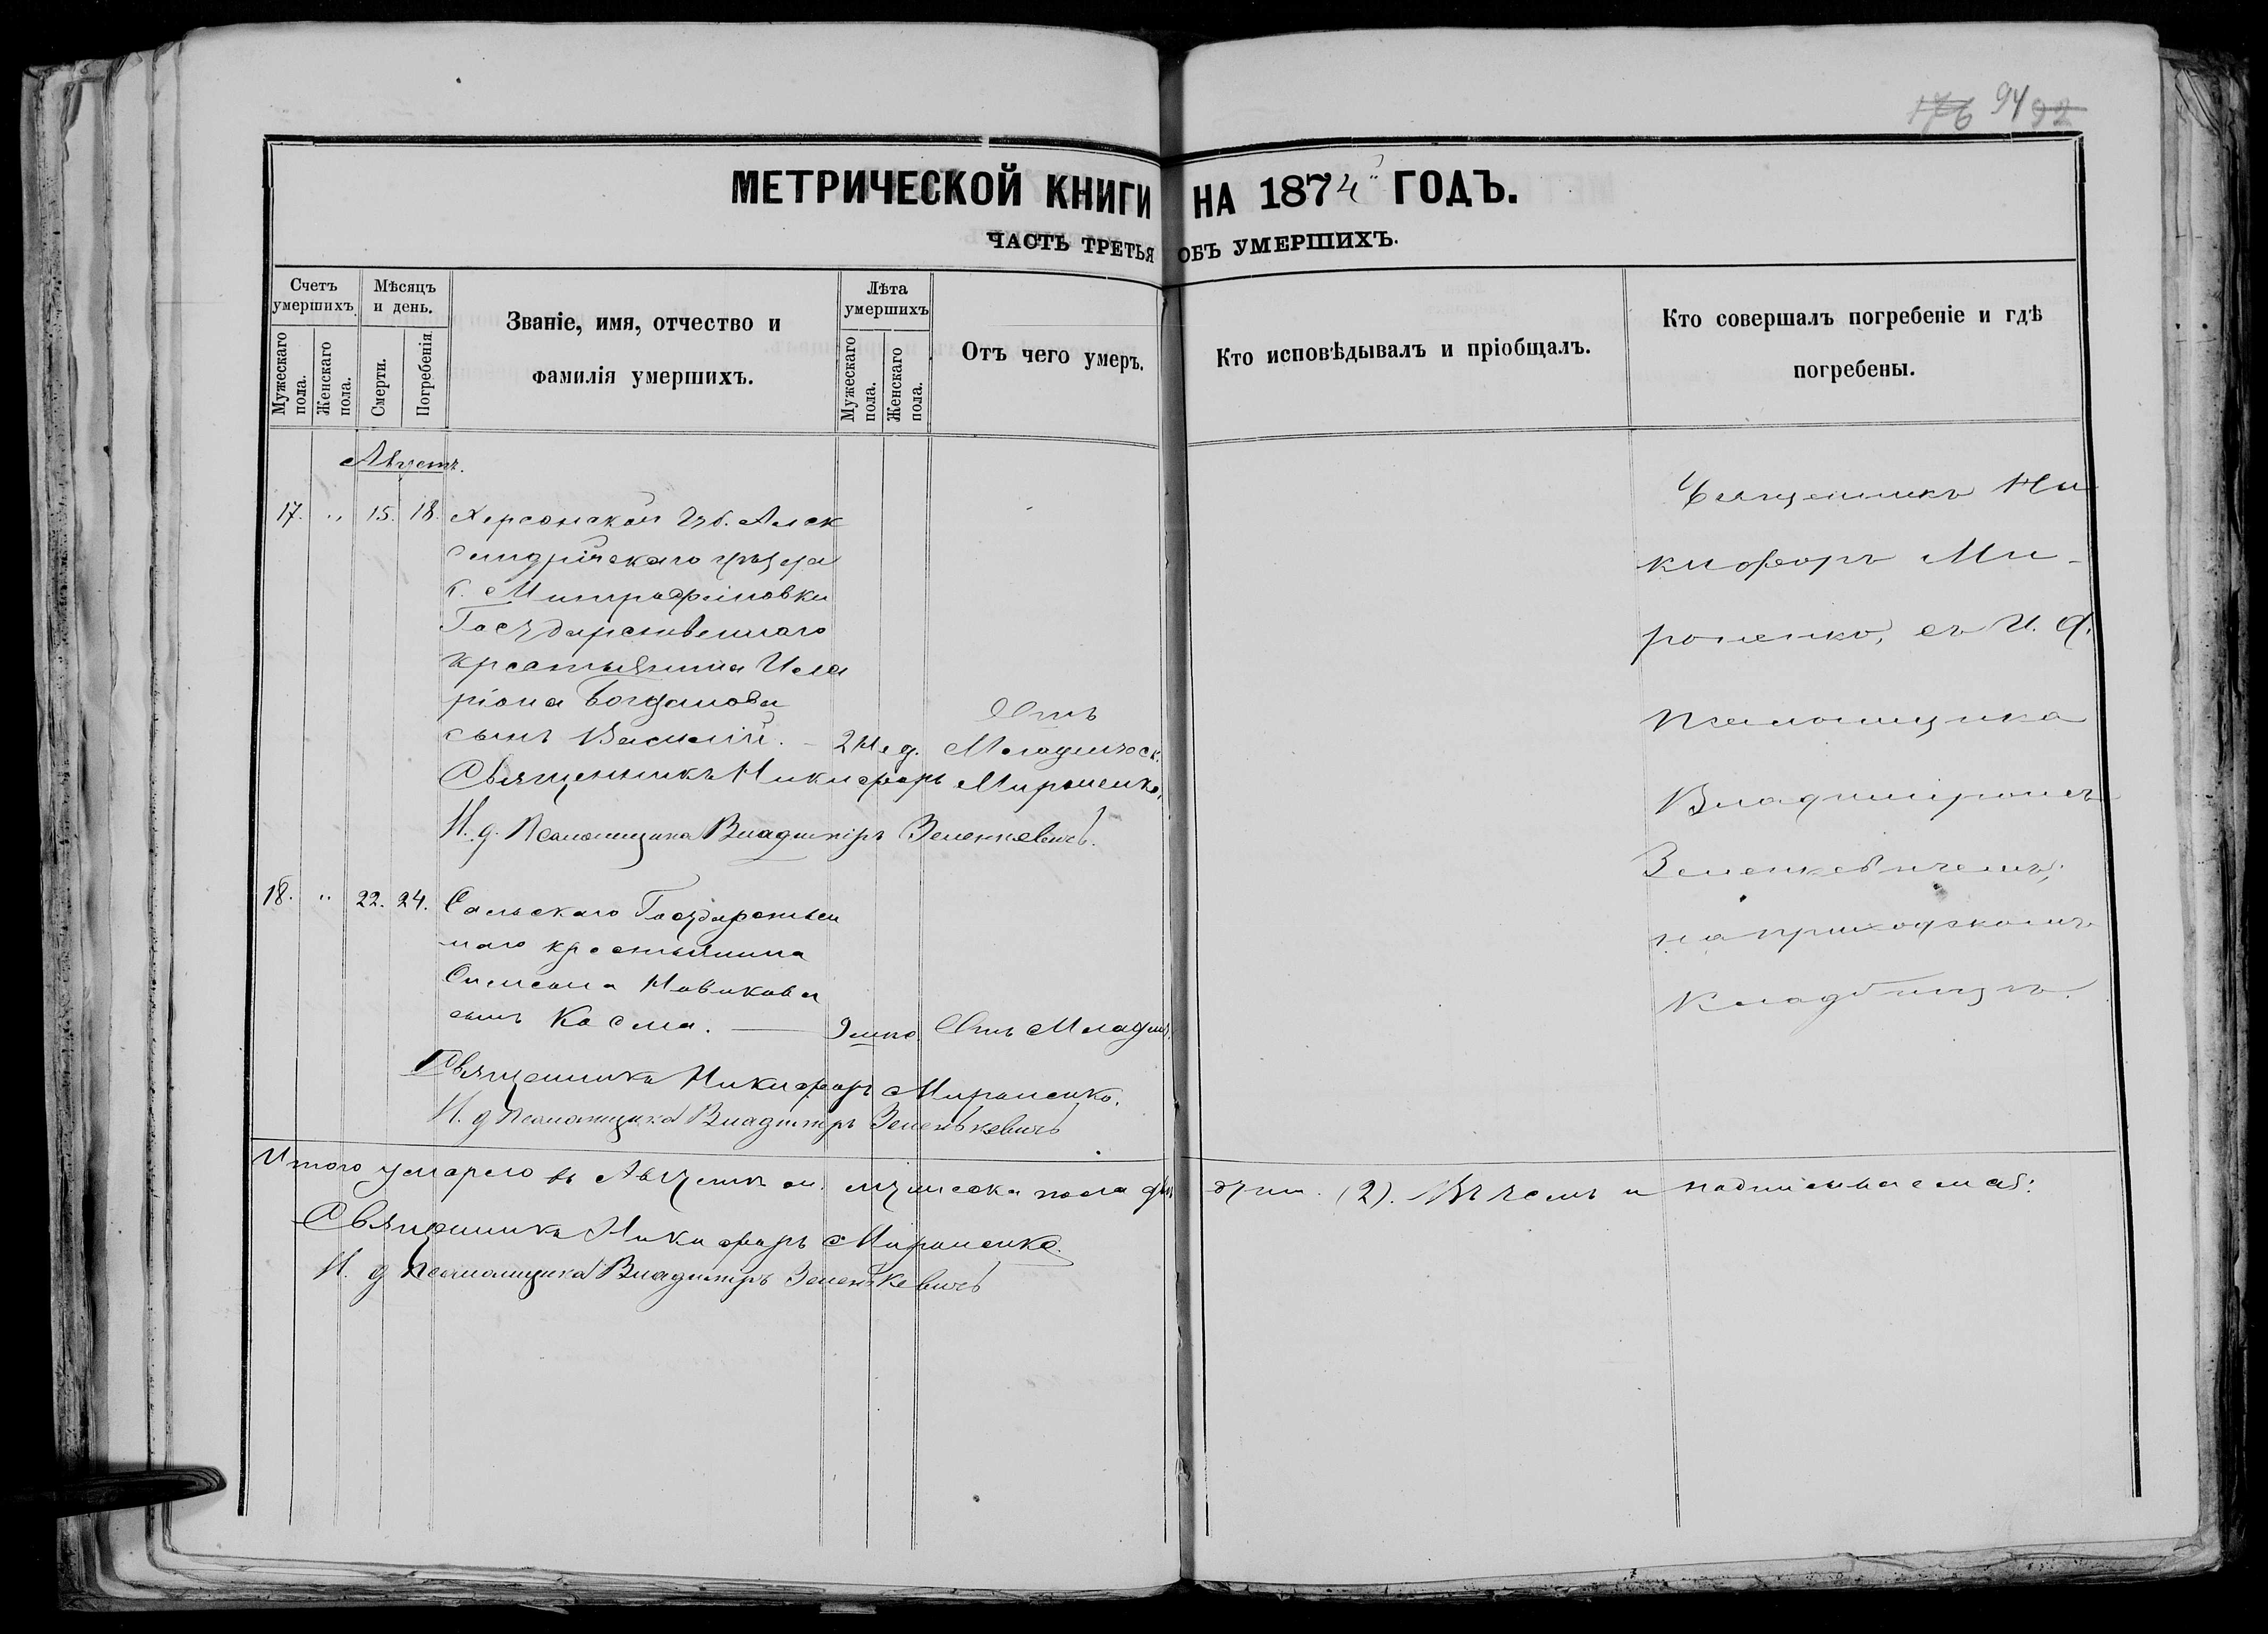 176 94 92
МЕТРИЧЕСКОЙ КНИГИ НА 1874 ГОДЪ.
ЧАСТЬ ТРЕТЬЯ ОБЪ УМЕРШИХЪ.
Счетъ умершихъ.
Мужескаго пола.
Женскаго пола.
Мѣсяцъ и день.
Смерти.
Погребенія.
Званіе, имя, отчество и
фамилія умершихъ.
Лѣта умершихъ
Мужескаго пола.
Женскаго пола.
Отъ чего умеръ.
Кто исповѣдывалъ и пріобщалъ.
Кто совершалъ погребеніе и гдѣ
погребены.
Августъ.
17. „ 15. 18. Херсонской Губ. Алек
сандрійскаго уѣзда
с. Митрофановки
Государственнаго
крестьянина Ила
ріона Богданова
сынъ Василій. – 2 Нед. Отъ Младенческ.
Священникъ Никифоръ Мироненко,
И. д. Псаломщика Владиміръ Зеленкевичъ.
18. „ 22. 24. Сельскаго Государствен
наго крестьянина
Симеона Новикова
сынъ Косма. — Отъ Младенч.
Священникъ Никифоръ Мироненко.
И. д Псаломщика Владиміръ Зеленькевичъ
Итого умерло въ Августѣ м. мужеска пола двѣ души. (2). Въ чемъ и подписываемся:
Священникъ Никифоръ Мироненко.
И. д Псаломщика Владиміръ Зеленькевичъ
Священникъ Ни
кифоръ Ми-
роненко, съ И. д.
псаломщика
Владиміромъ
Зеленкевичемъ;
на приходскомъ
кладбищѣ.